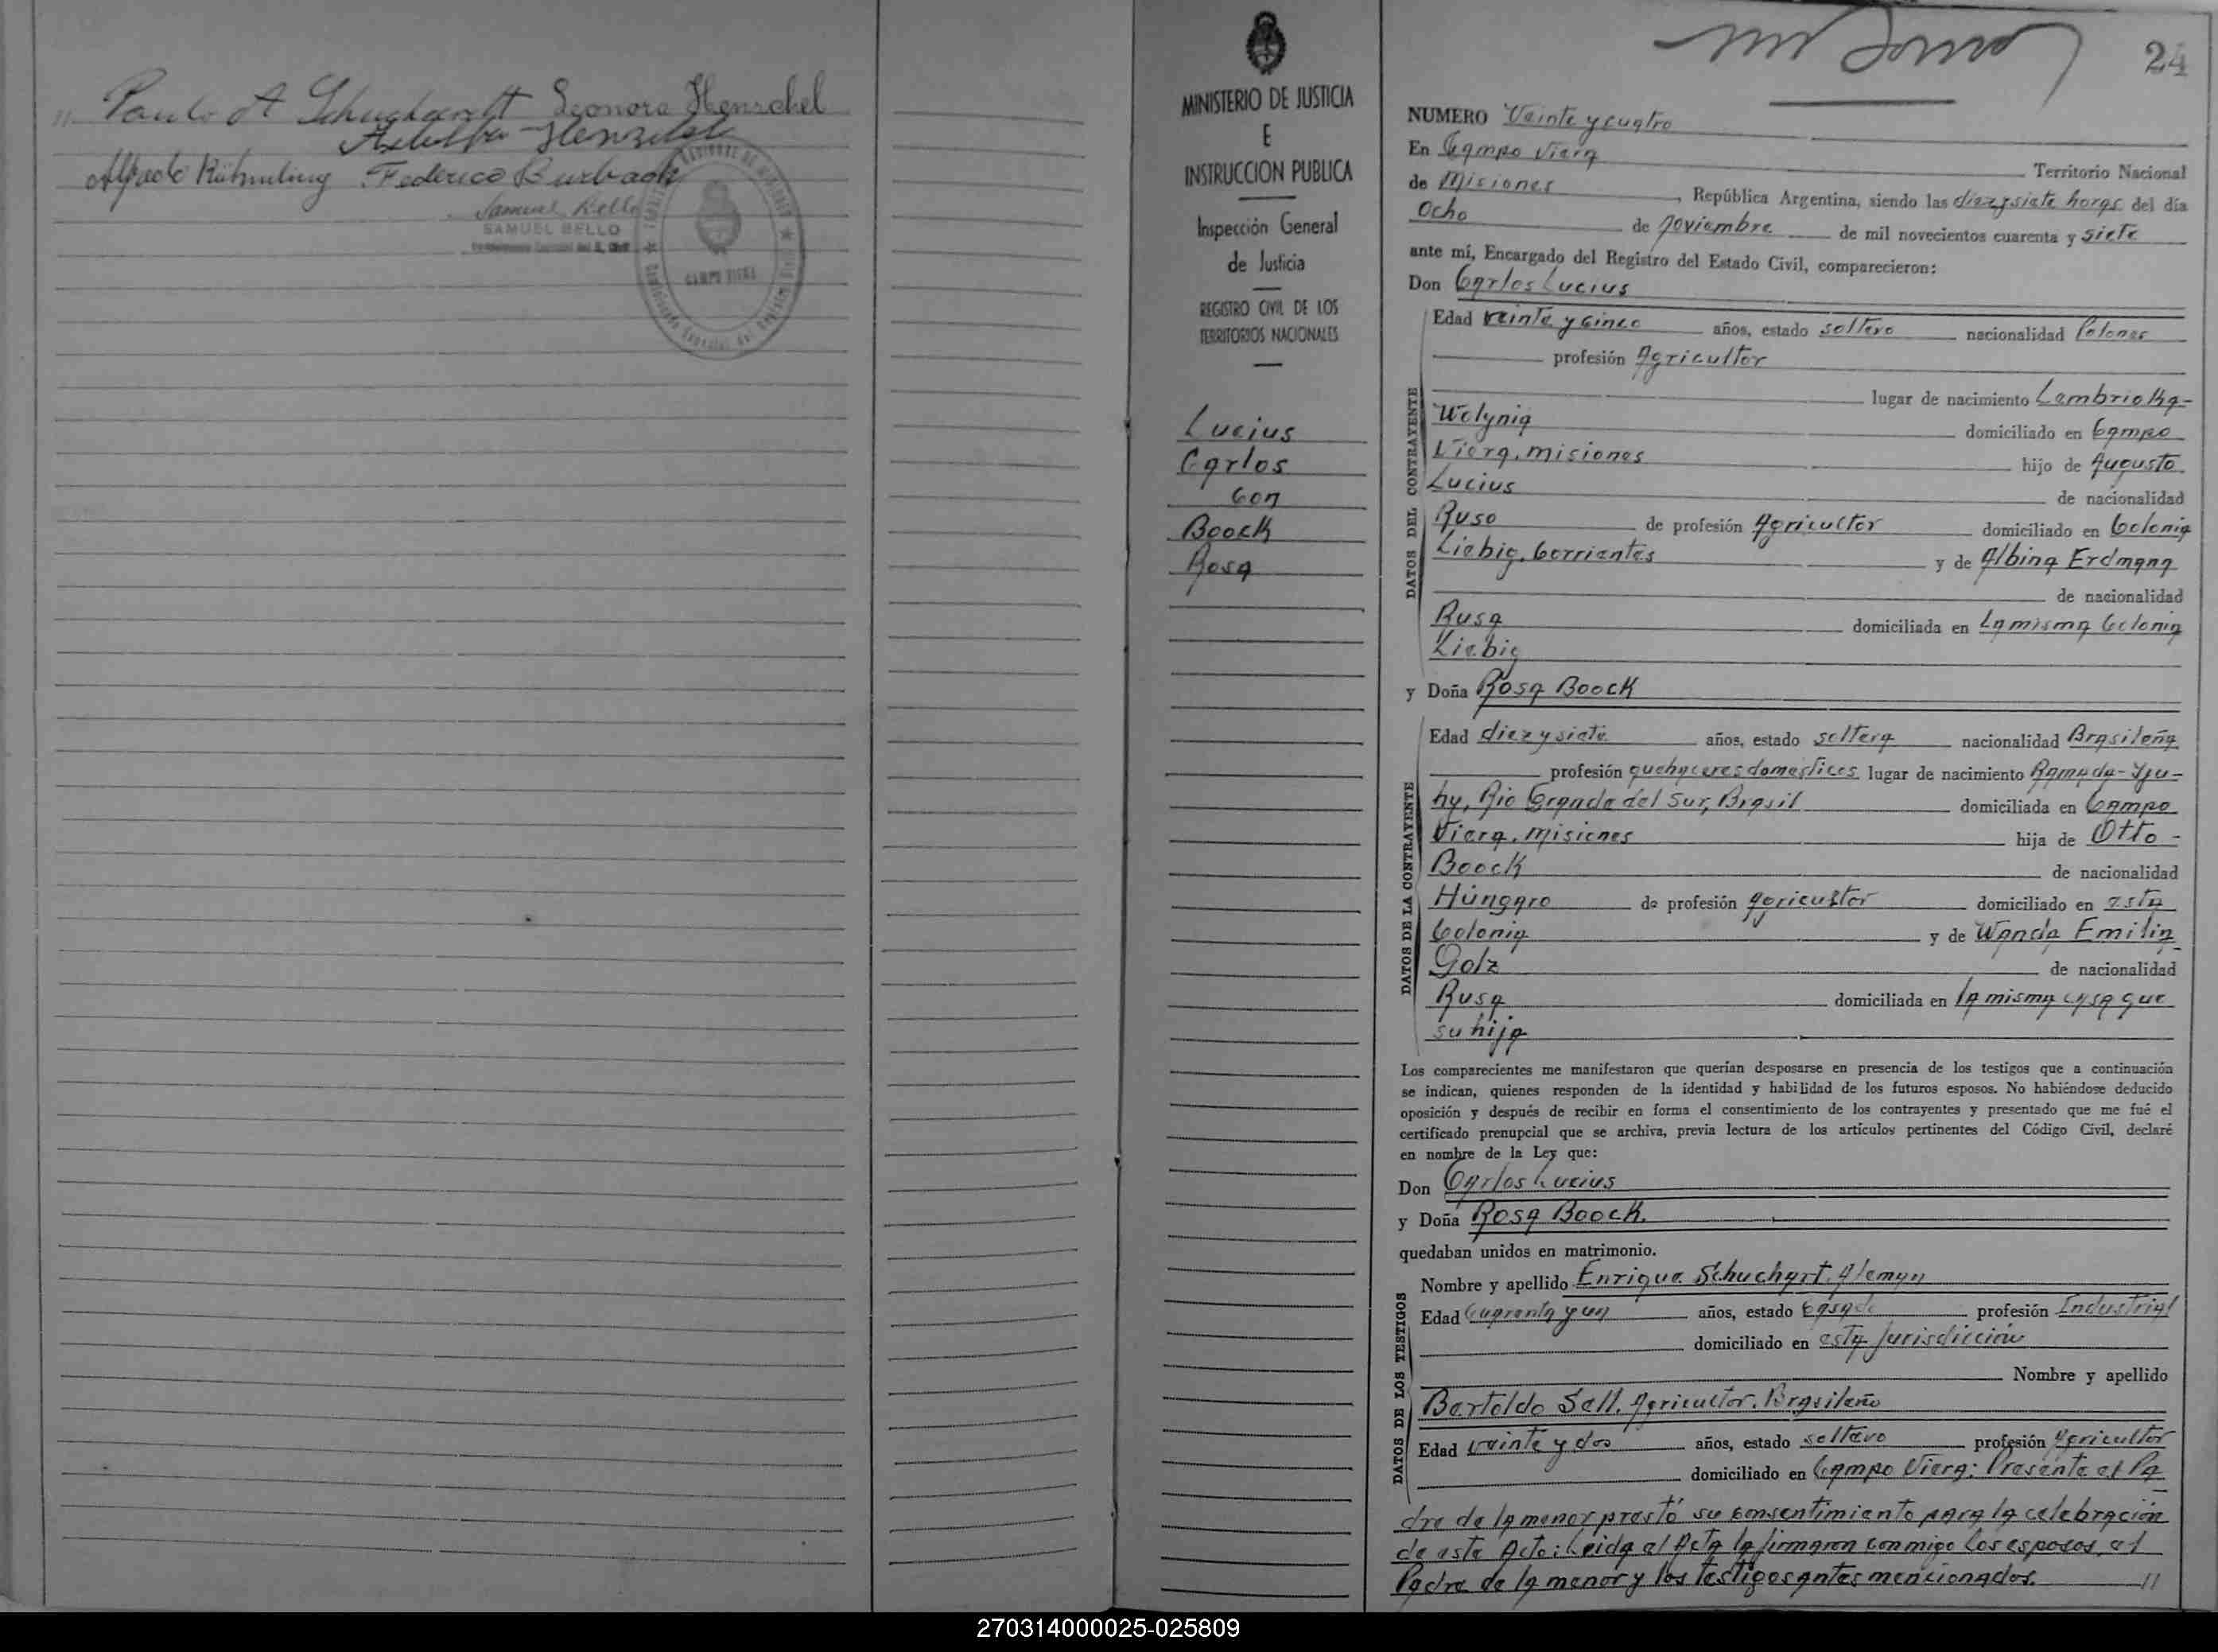 Leonora Henschel
Federico Burbach
Samuel Bello
SAMUEL BELLO
CAMPO VIERA
MINISTERIO DE JUSTICIA
E
INSTRUCCION PUBLICA
Inspección General
de Justicia
REGISTRO CIVIL DE LOS
TERRITORIOS NACIONALES
Lucius
Carlos
con
Boock
Rosa
24
NUMERO Veinte y cuatro
En Campo Viera
Territorio Nacional
de Misiones, República Argentina, siendo las diez y siete horas del día
Ocho de Noviembre de mil novecientos cuarenta y siete
ante mí, Encargado del Registro del Estado Civil, comparecieron:
Don Carlos Lucius
DATOS DEL CONTRAYENTE
Edad veinte y cinco años, estado soltero nacionalidad Polones
profesión Agricultor
lugar de nacimiento Lambrioka-
Wolynia domiciliado en Campo
Viera, misiones hijo de Augusto
Lucius de nacionalidad
Ruso de profesión Agricultor domiciliado en Colonia
Liebig, Corrientes y de Albina Erdmana
de nacionalidad
Rusa domiciliada en La misma Colonia
Liebig
y Doña Rosa Boock
DATOS DE LA CONTRAYENTE
Edad diez y siete años, estado soltera nacionalidad Brasileña
profesión quehaceres domesticos lugar de nacimiento Ramada-Yju-
hy, Rio Grande del Sur, Brasil domiciliada en Campo
Viera, Misiones hija de Otto -
Boock de nacionalidad
Húngaro de profesión agricultor domiciliado en esta
Colonia y de Wanda Emilia
Golz de nacionalidad
Rusa domiciliada en la misma casa que
su hija
Los comparecientes me manifestaron que querían desposarse en presencia de los testigos que a continuación
se indican, quienes responden de la identidad y habilidad de los futuros esposos. No habiéndose deducido
oposición y después de recibir en forma el consentimiento de los contrayentes y presentado que me fué el
certificado prenupcial que se archiva, previa lectura de los artículos pertinentes del Código Civil, declaré
en nombre de la Ley que:
Don Carlos Lucius
y Doña Rosa Boock.
quedaban unidos en matrimonio.
DATOS DE LOS TESTIGOS
Nombre y apellido Enrique Schuchart, Aleman
Edad Cuarenta y un años, estado casado profesión Industrial
domiciliado en esta Jurisdicción
Nombre y apellido
Bertoldo Sell, Agricultor, Brasileño
Edad veinte y dos años, estado soltero profesión Agricultor
domiciliado en Campo Viera; Presente el Pa
dre de la menor prestó su consentimiento para la celebración
de este Acto: Leida el Acta la firmaron conmigo los esposos, el
Padre de la menor y los testigos antes mencionados. //
270314000025-025809